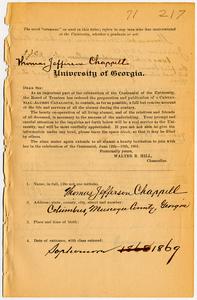 71 217
The word "alumnus" as used in this letter, refers to any man who has matriculated
at the University, whether a graduate or not.
Thomas Jefferson Chappell
University of Georgia.
DEAR SIR:
As an important part of the celebration of the Centennial of the University,
the Board of Trustees has ordered the preparation and publication of a CENTEN-
NIAL ALUMNI CATALOGUE, to contain, as far as possible, a full but concise account
of the life and services of all the alumni during the century.
The co-operation of all living alumni, and of the relatives and friends
of all deceased, is necessary to the success of the undertaking. Your prompt and
careful attention to the inquiries set forth below will be a real service to the Univer-
sity, and will be most cordially appreciated. If you are not able to give the
information under any head, please leave the space blank, so that it may be filled
by others.
The alma mater again extends to all alumni a hearty invitation to join with
her in the celebration of the Centennial, June 12th-19th, 1901.
Fraternally yours,
WALTER B. HILL,
Chancellor.
1. Name, in full, (Do not use initials)
Thomas Jefferson Chappell
2. Address: state, county, city, street and number:
Columbus Muscogee County Georgia
3. Place and time of birth:
4. Date of entrance, with class entered:
Sophomore 1868 1869